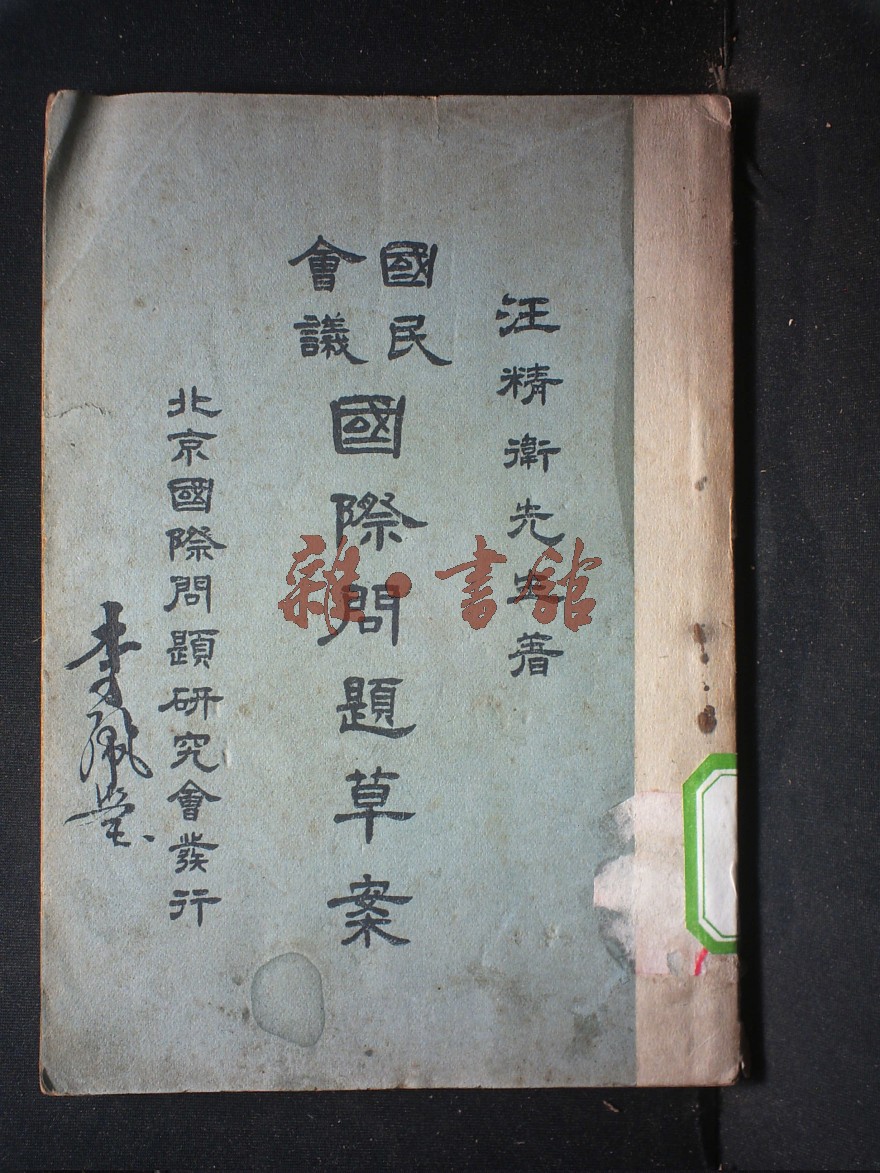 汪精衛先生著
國民
會議
國際問題草案
北京國際問題研究會發行
雜·書館